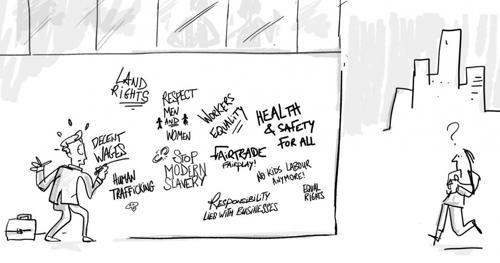 LAND
RIGHTS
RESPECT
MEN
AND
WOMEN
WORKERS
EQUALITY
HEALTH
& SAFETY
FOR ALL
DECENT
WAGES
STOP
MODERN
SLAVERY
FAIRTRADE
FAIRPLAY!
NO KIDS LABOUR
ANYMORE!
HUMAN
TRAFFICKING
RESPONSIBILITY
LIED WITH BUSINESSES
EQUAL
RIGHTS
?